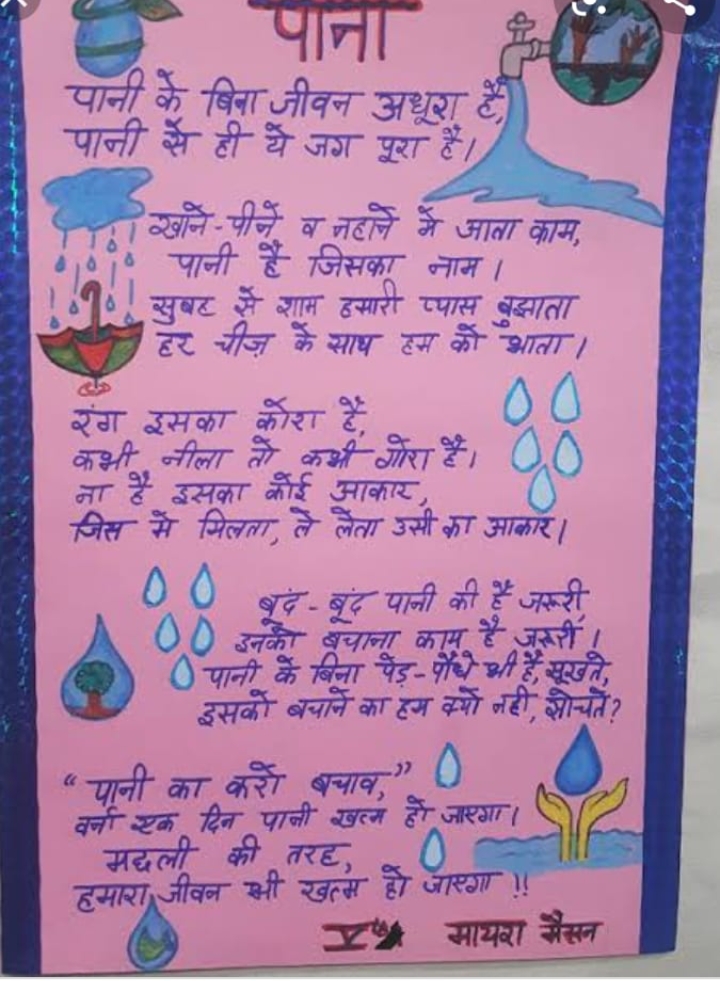 पानी
पानी के बिना जीवन अधूरा है,
पानी से ही ये जग पूरा है।
खाने-पीने व नहाने मे आता काम,
पानी है जिसका नाम।
सुबह से शाम हमारी प्यास बुझाता
हर चीज़ के साथ हम को भाता।
रंग इसका कोरा है,
कभी नीला तो कभी गोरा है।
ना है इसका कोई आकार,
जिस मे मिलता, ले लेता उसी का आकार।
बूंद-बूंद पानी की है जरूरी,
इनको बचाना काम है जरूरी।
पानी के बिना पेड़-पौधे भी है, सूखते,
इसको बचाने का हम क्यो नही, सोचते?
“पानी का करो बचाव,”
वर्ना एक दिन पानी खत्म हो जाएगा।
मछली की तरह,
हमारा जीवन भी खत्म हो जाएगा !!
Vth मायरा मैसन